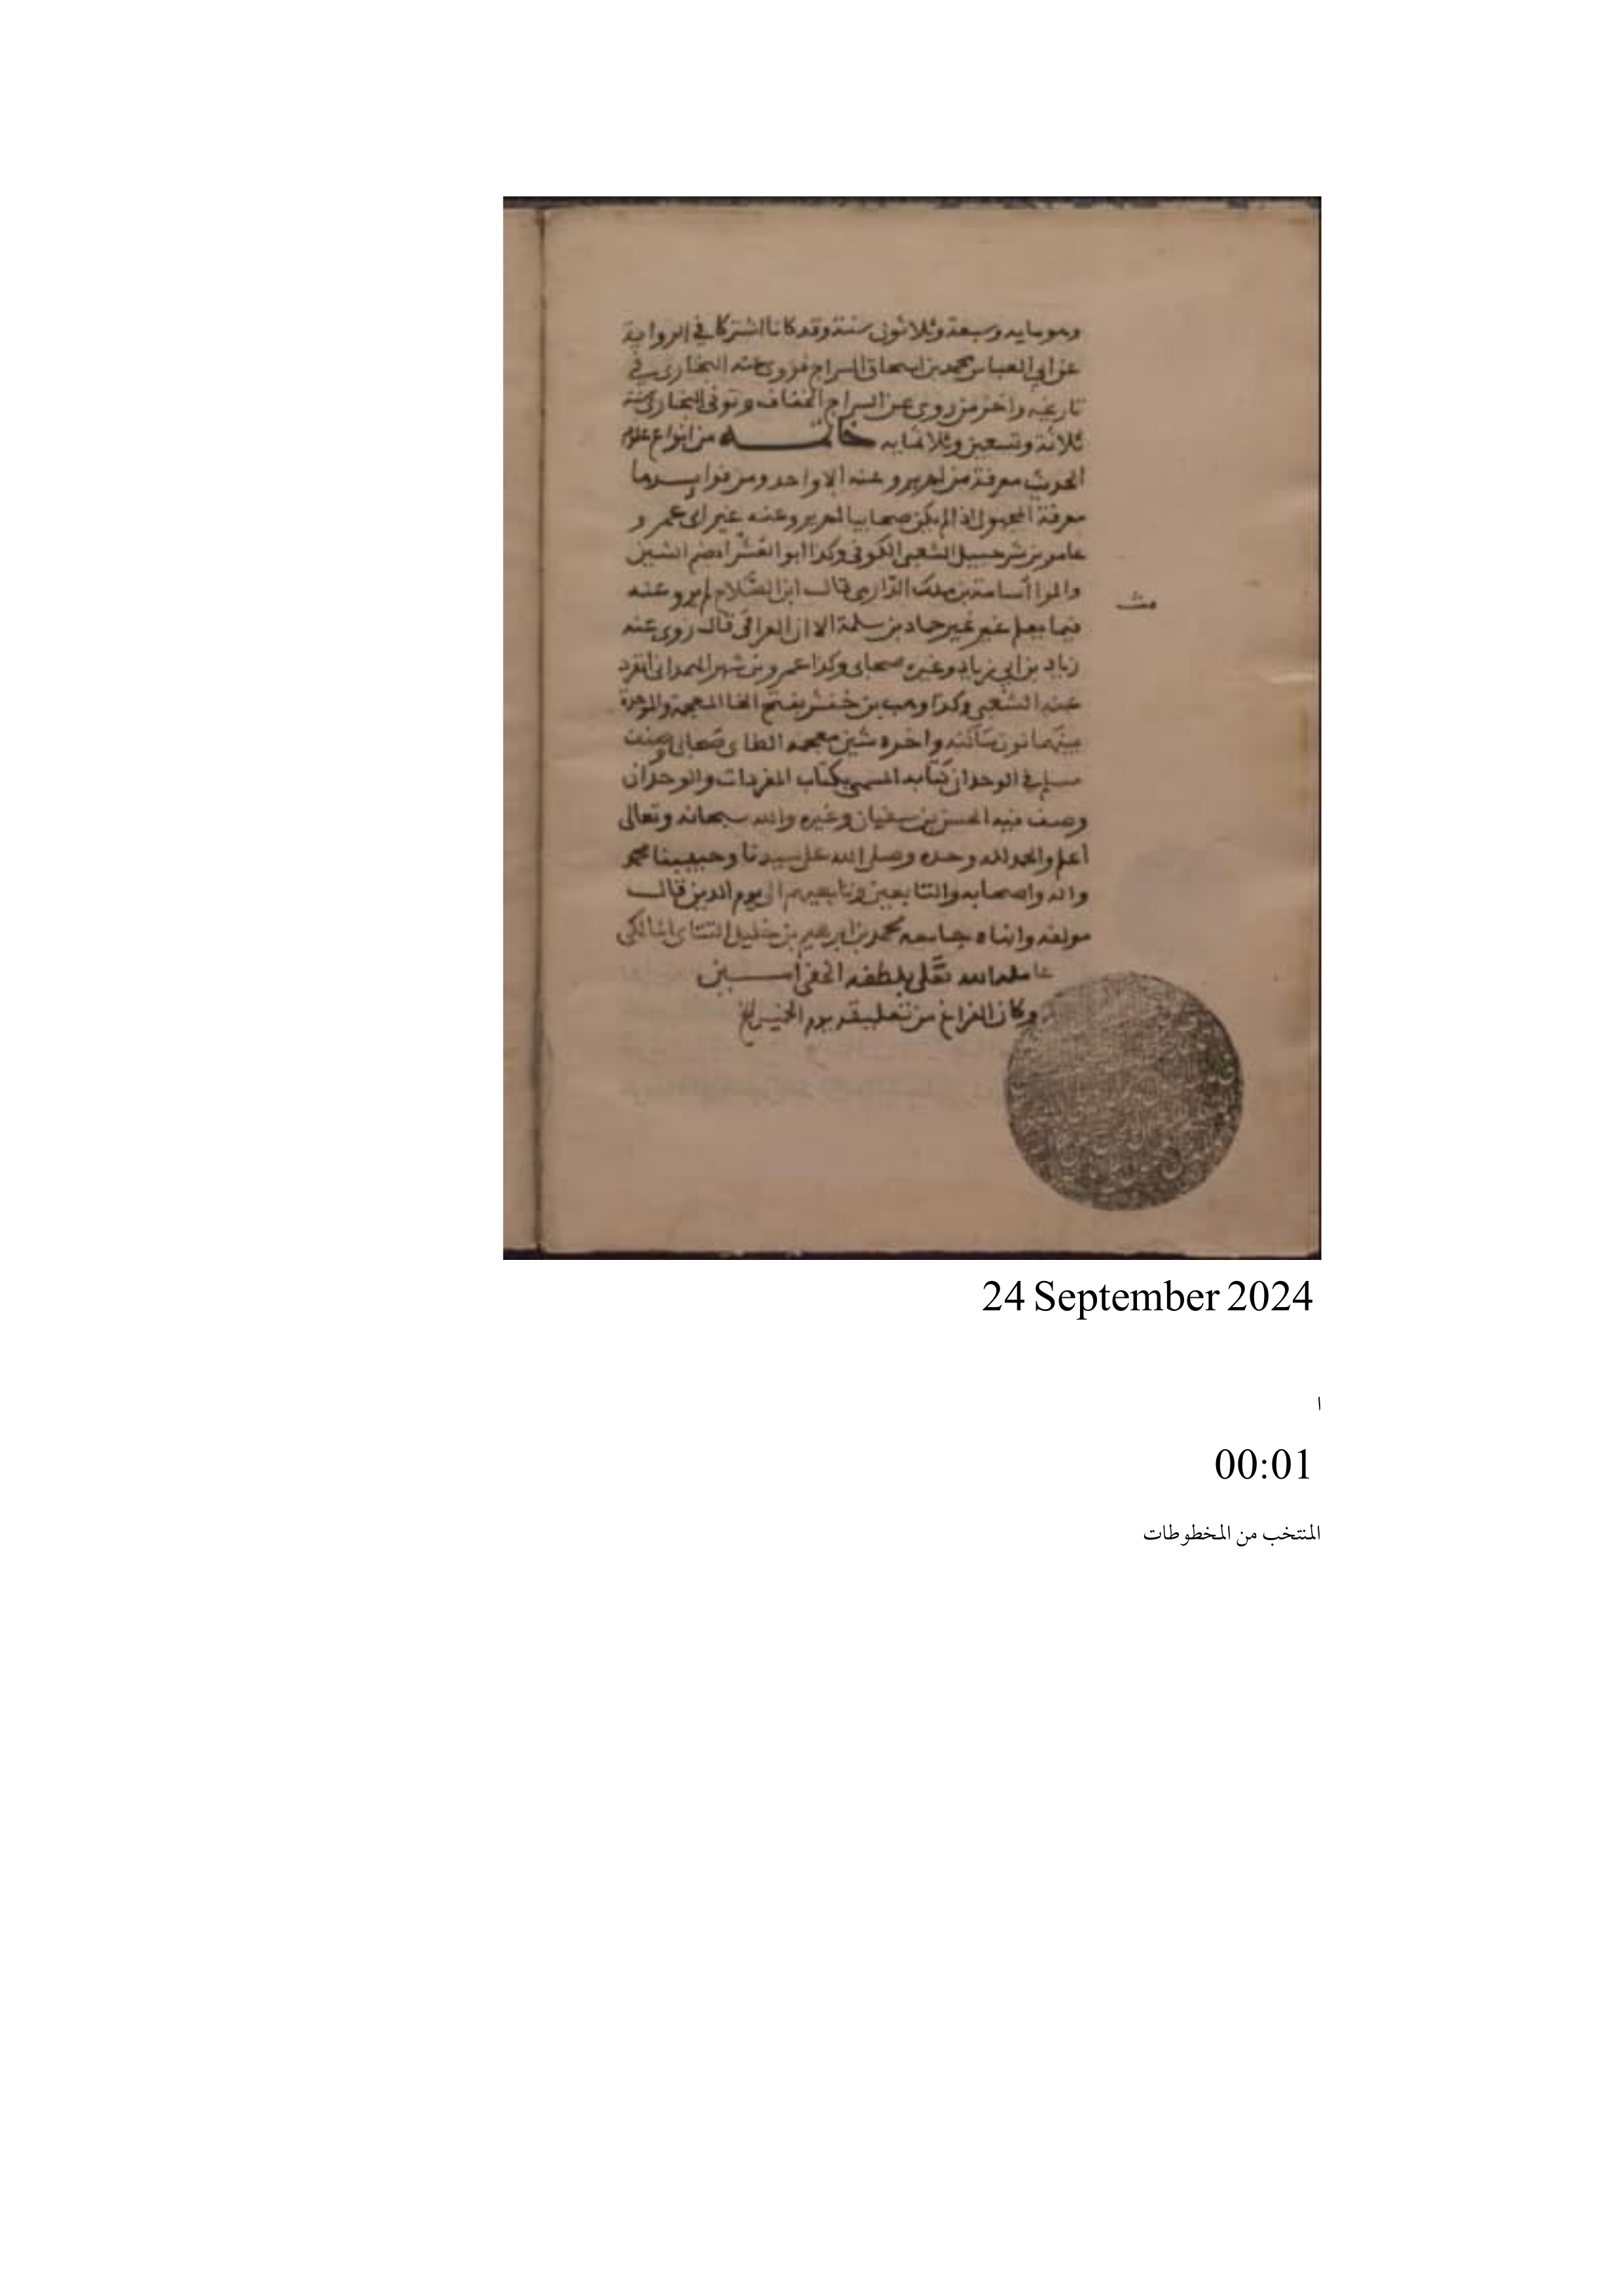 وهو مايه وسبعة وثلاثون سنة وقد كانا اشتركا في الرواية
عن ابي العباس محمد بن اسحاق السراج فروى عنه البخاري في
تاريخه واخر من روى عن السراج الخفاف وتوفى البخاري سنة
ثلاثة وتسعين وثلاثمايه خاتمـــه من انواع علوم
الحديث معرفة من لم يرو عنه الا واحد ومن فوايدها
معرفة المجهول اذا لم يكن صحابيا لم يرو عنه غير
عامر بن شرحبيل الشعبي الكوفي وكذا ابو العشرا بضم الشين
والمرا أسامة بن ملك الدارمي قال ابن الصلاح لم يرو عنه
فيما يعلم غير غير حماد بن سلمة الا ان العراقي قال روى عنه
زياد بن ابي زياد وغيره صحابي وكذا عمرو بن شهر الهمداني انفرد
عنه الشعبي وكذا وهب بن خنبش بفتح الخا المعجمة والموحدة
بينهما نون ساكنة واخره شين معجمه الطاي صحابي وصنف
مسلم في الوحدان كتابه المسمى بكتاب المفردات والوحدان
وصنف فيه الحسن بن سفيان وغيره والله سبحانه وتعالى
أعلم والحمد لله وحده وصلى الله على سيدنا وحبيبنا محمد
واله واصحابه والتابعين وتابعيهم الى يوم الدين قال
مولفه وانهاه جامعه محمد بن ابرهيم بن خليل التتاي المالكي
عامله الله تعلى بلطفه الخفي امـــين
وكان الفراغ من تعليقه يوم الخميس
24 September 2024
ا
00:01
المنتخب من المخطوطات